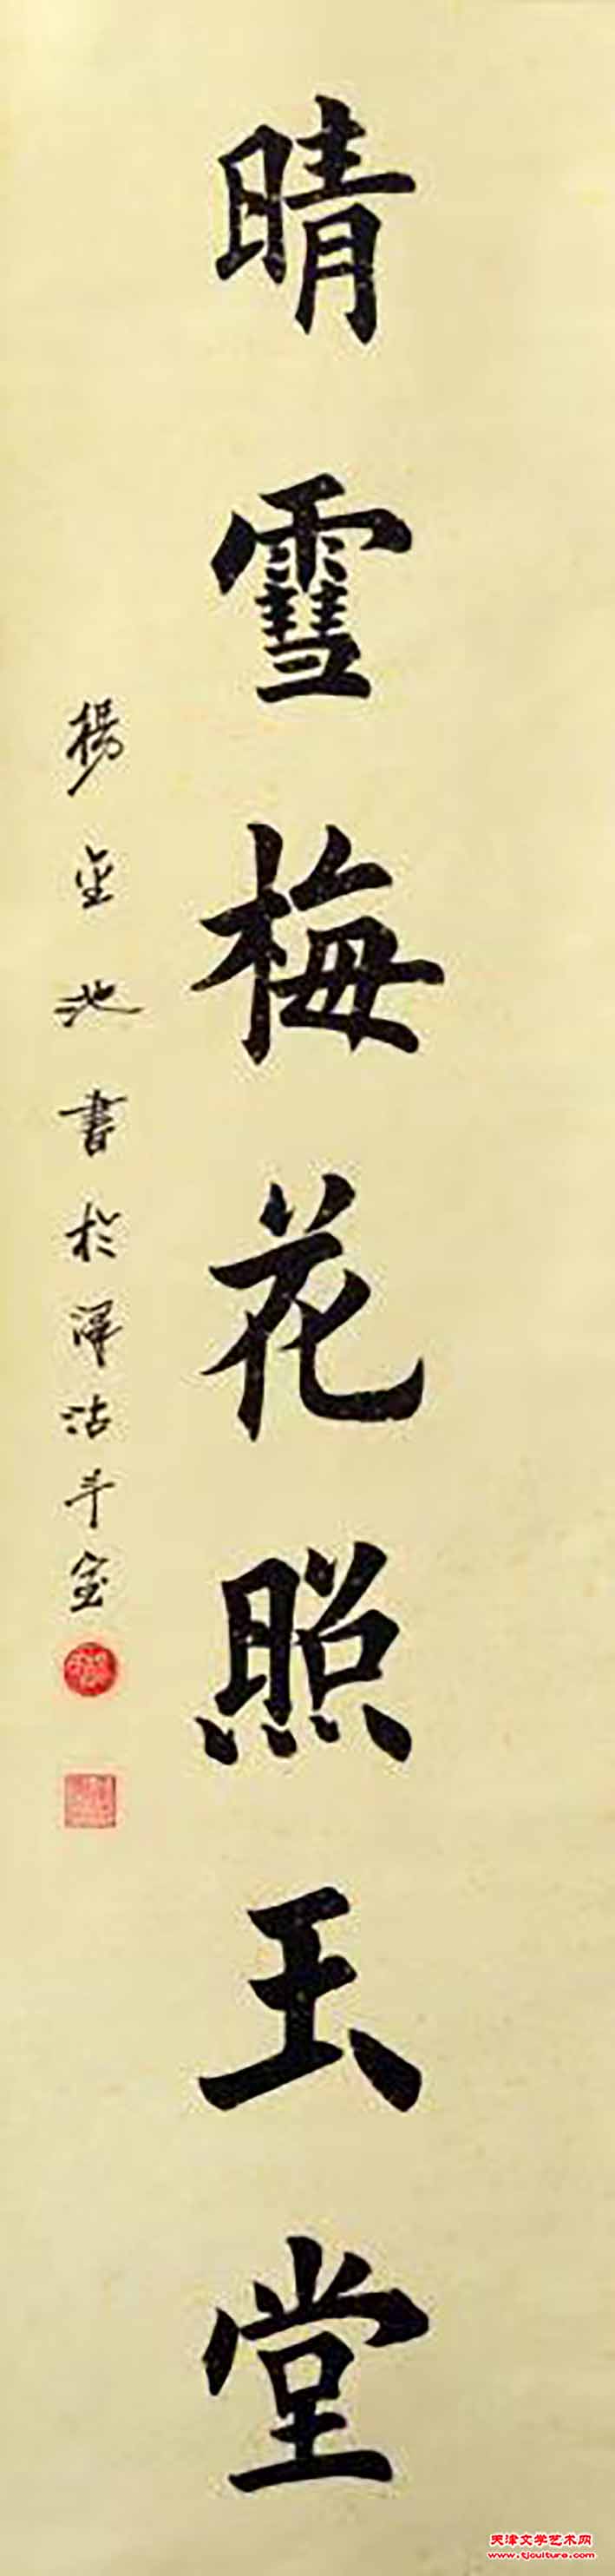 晴雪梅花照玉堂
楊金池書於津沽斗室
天津文学艺术网
www.tjculture.com